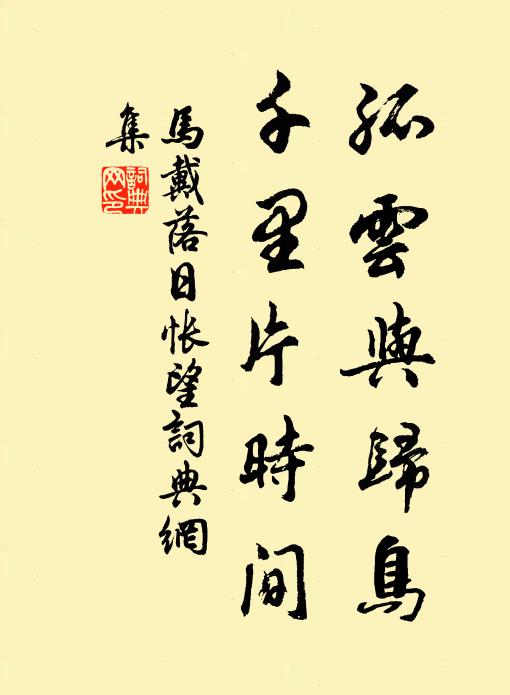 孤雲與歸鳥
千里片時間
馬戴落日悵望詞典網
集
詞典網印